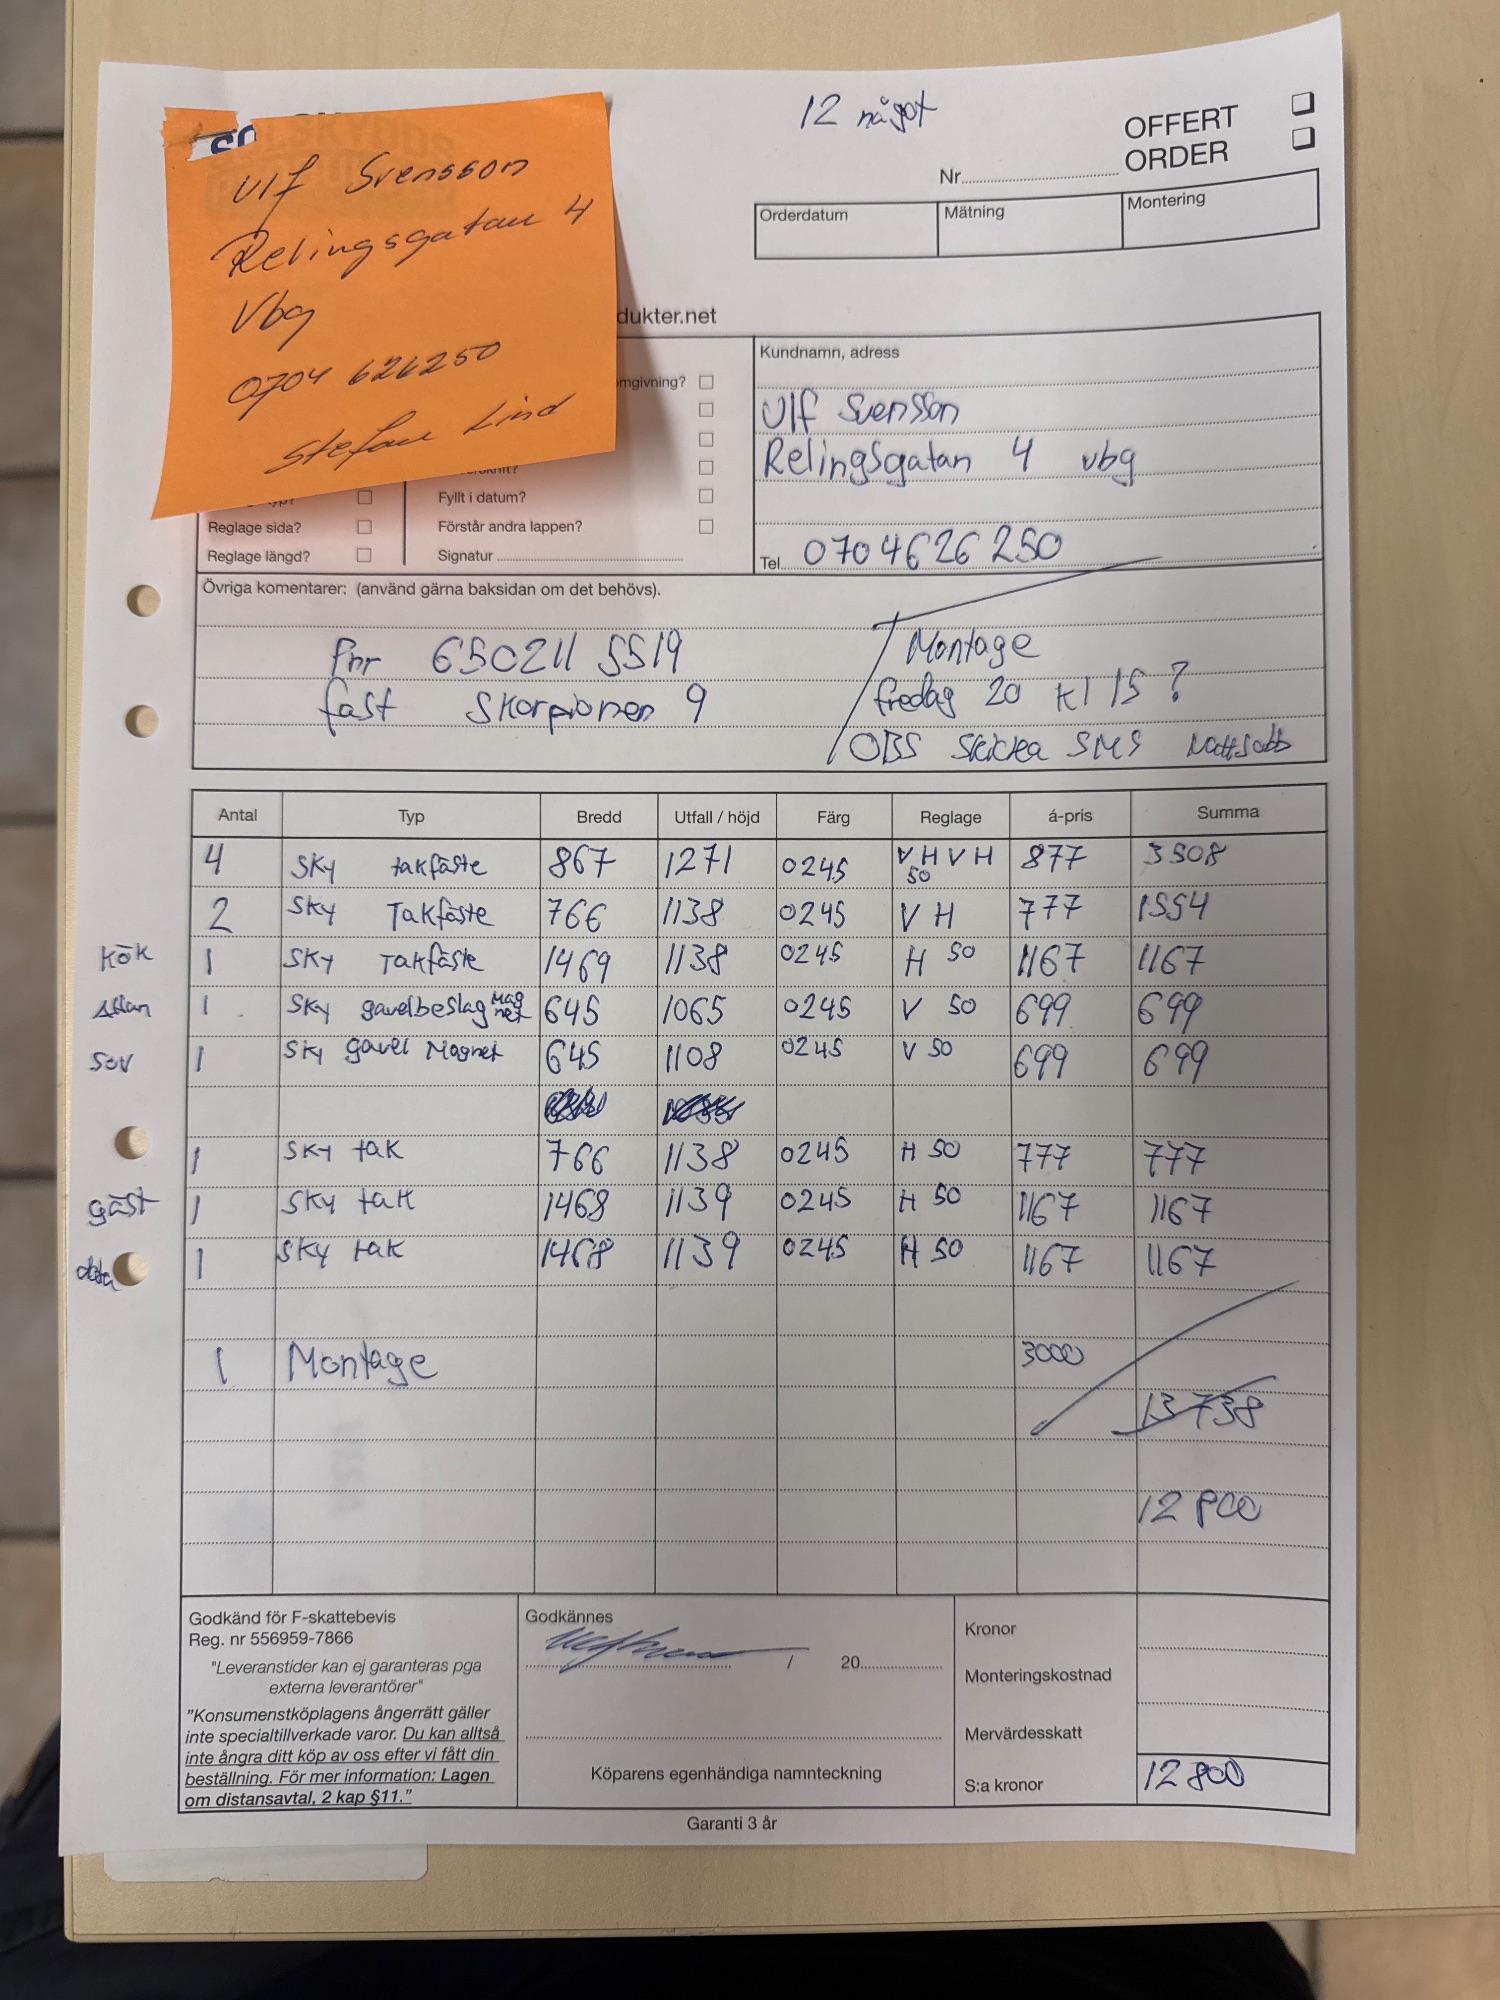 12 något
OFFERT
ORDER
Nr
Orderdatum Mätning Montering
Ulf Svensson
Relingsgatan 4
Vbg
0704 626250
Stefan Lind
dukter.net
omgivning?
Fyllt i datum?
Reglage sida? Förstår andra lappen?
Reglage längd? Signatur
Kundnamn, adress
Ulf Svensson
Relingsgatan 4 vbg
Tel. 0704626250
Övriga komentarer: (använd gärna baksidan om det behövs).
Pnr 650211 5519
fast Skorpionen 9
Montage
fredag 20 kl 15 ?
OBS skicka SMS
Antal Typ Bredd Utfall / höjd Färg Reglage á-pris Summa
4 Sky takfäste 867 1271 0245 V H V H 50 877 3508
2 Sky Takfäste 766 1138 0245 V H 777 1554
Kök 1 Sky Takfäste 1469 1138 0245 H 50 1167 1167
1 Sky gavelbeslag Magnet 645 1065 0245 V 50 699 699
Sov 1 Sky gavel Magnet 645 1108 0245 V 50 699 699
1 Sky tak 766 1138 0245 H 50 777 777
gäst 1 Sky tak 1468 1139 0245 H 50 1167 1167
1 Sky tak 1468 1139 0245 H 50 1167 1167
1 Montage 3000
13 738
12 800
Godkänd för F-skattebevis
Reg. nr 556959-7866
"Leveranstider kan ej garanteras pga
externa leverantörer"
"Konsumenstköplagens ångerrätt gäller
inte specialtillverkade varor. Du kan alltså
inte ångra ditt köp av oss efter vi fått din
beställning. För mer information: Lagen
om distansavtal, 2 kap §11."
Godkännes
/ 20
Köparens egenhändiga namnteckning
Kronor
Monteringskostnad
Mervärdesskatt
S:a kronor 12 800
Garanti 3 år